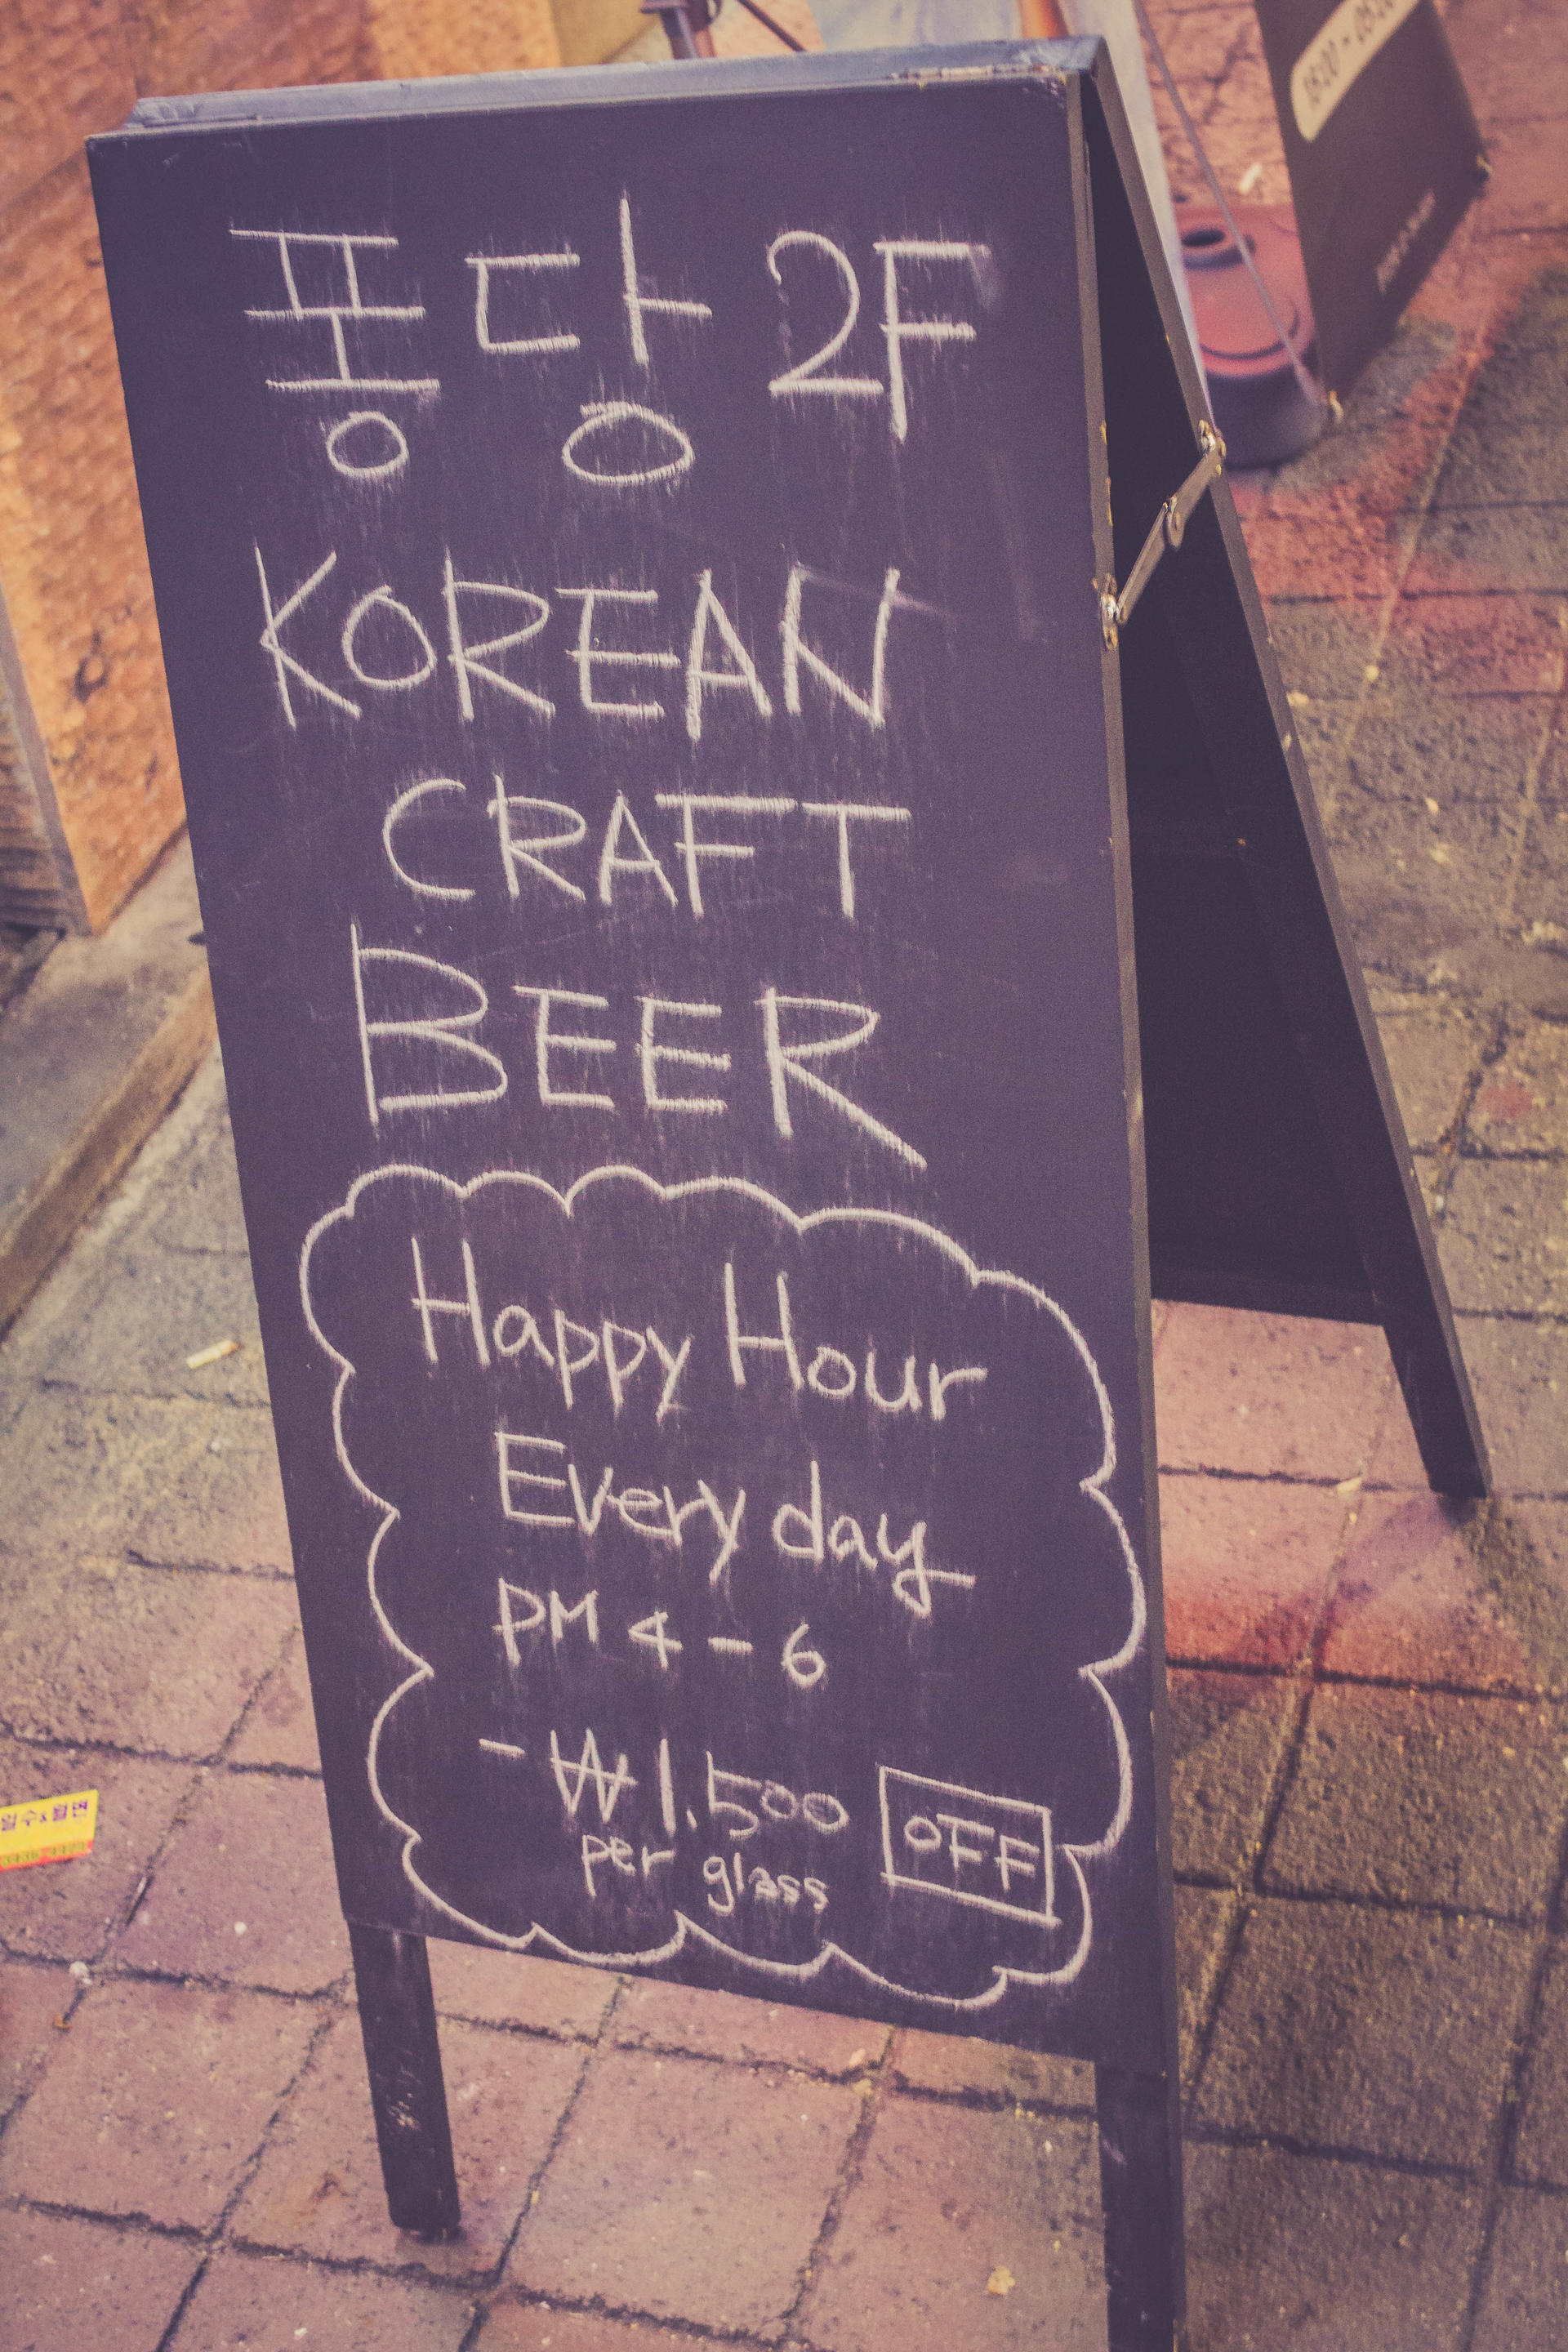 퐁당 2F
KOREAN
CRAFT
BEER
Happy Hour
Every day
PM 4 - 6
- ₩1.500 OFF
per glass